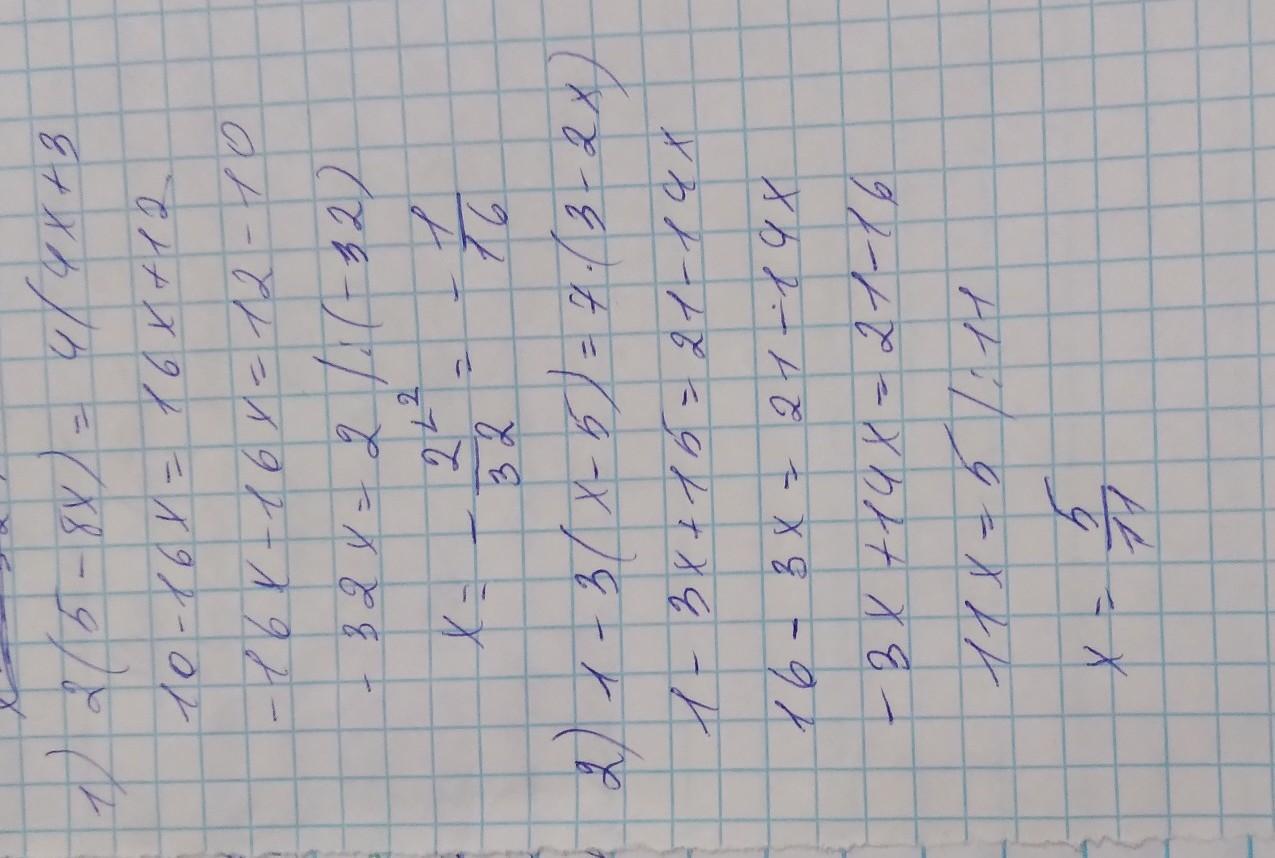 1) 2(5-8x)= 4(4x+3
10-16x=16x+12
-16x-16x=12-10
-32x=2 /:(-32)
x= - 2∠2/32 = - 1/16
2) 1-3(x-5)=7·(3-2x)
1-3x+15=21-14x
16-3x=21-14x
-3x+14x=21-16
11x=5 /:11
x= 5/11